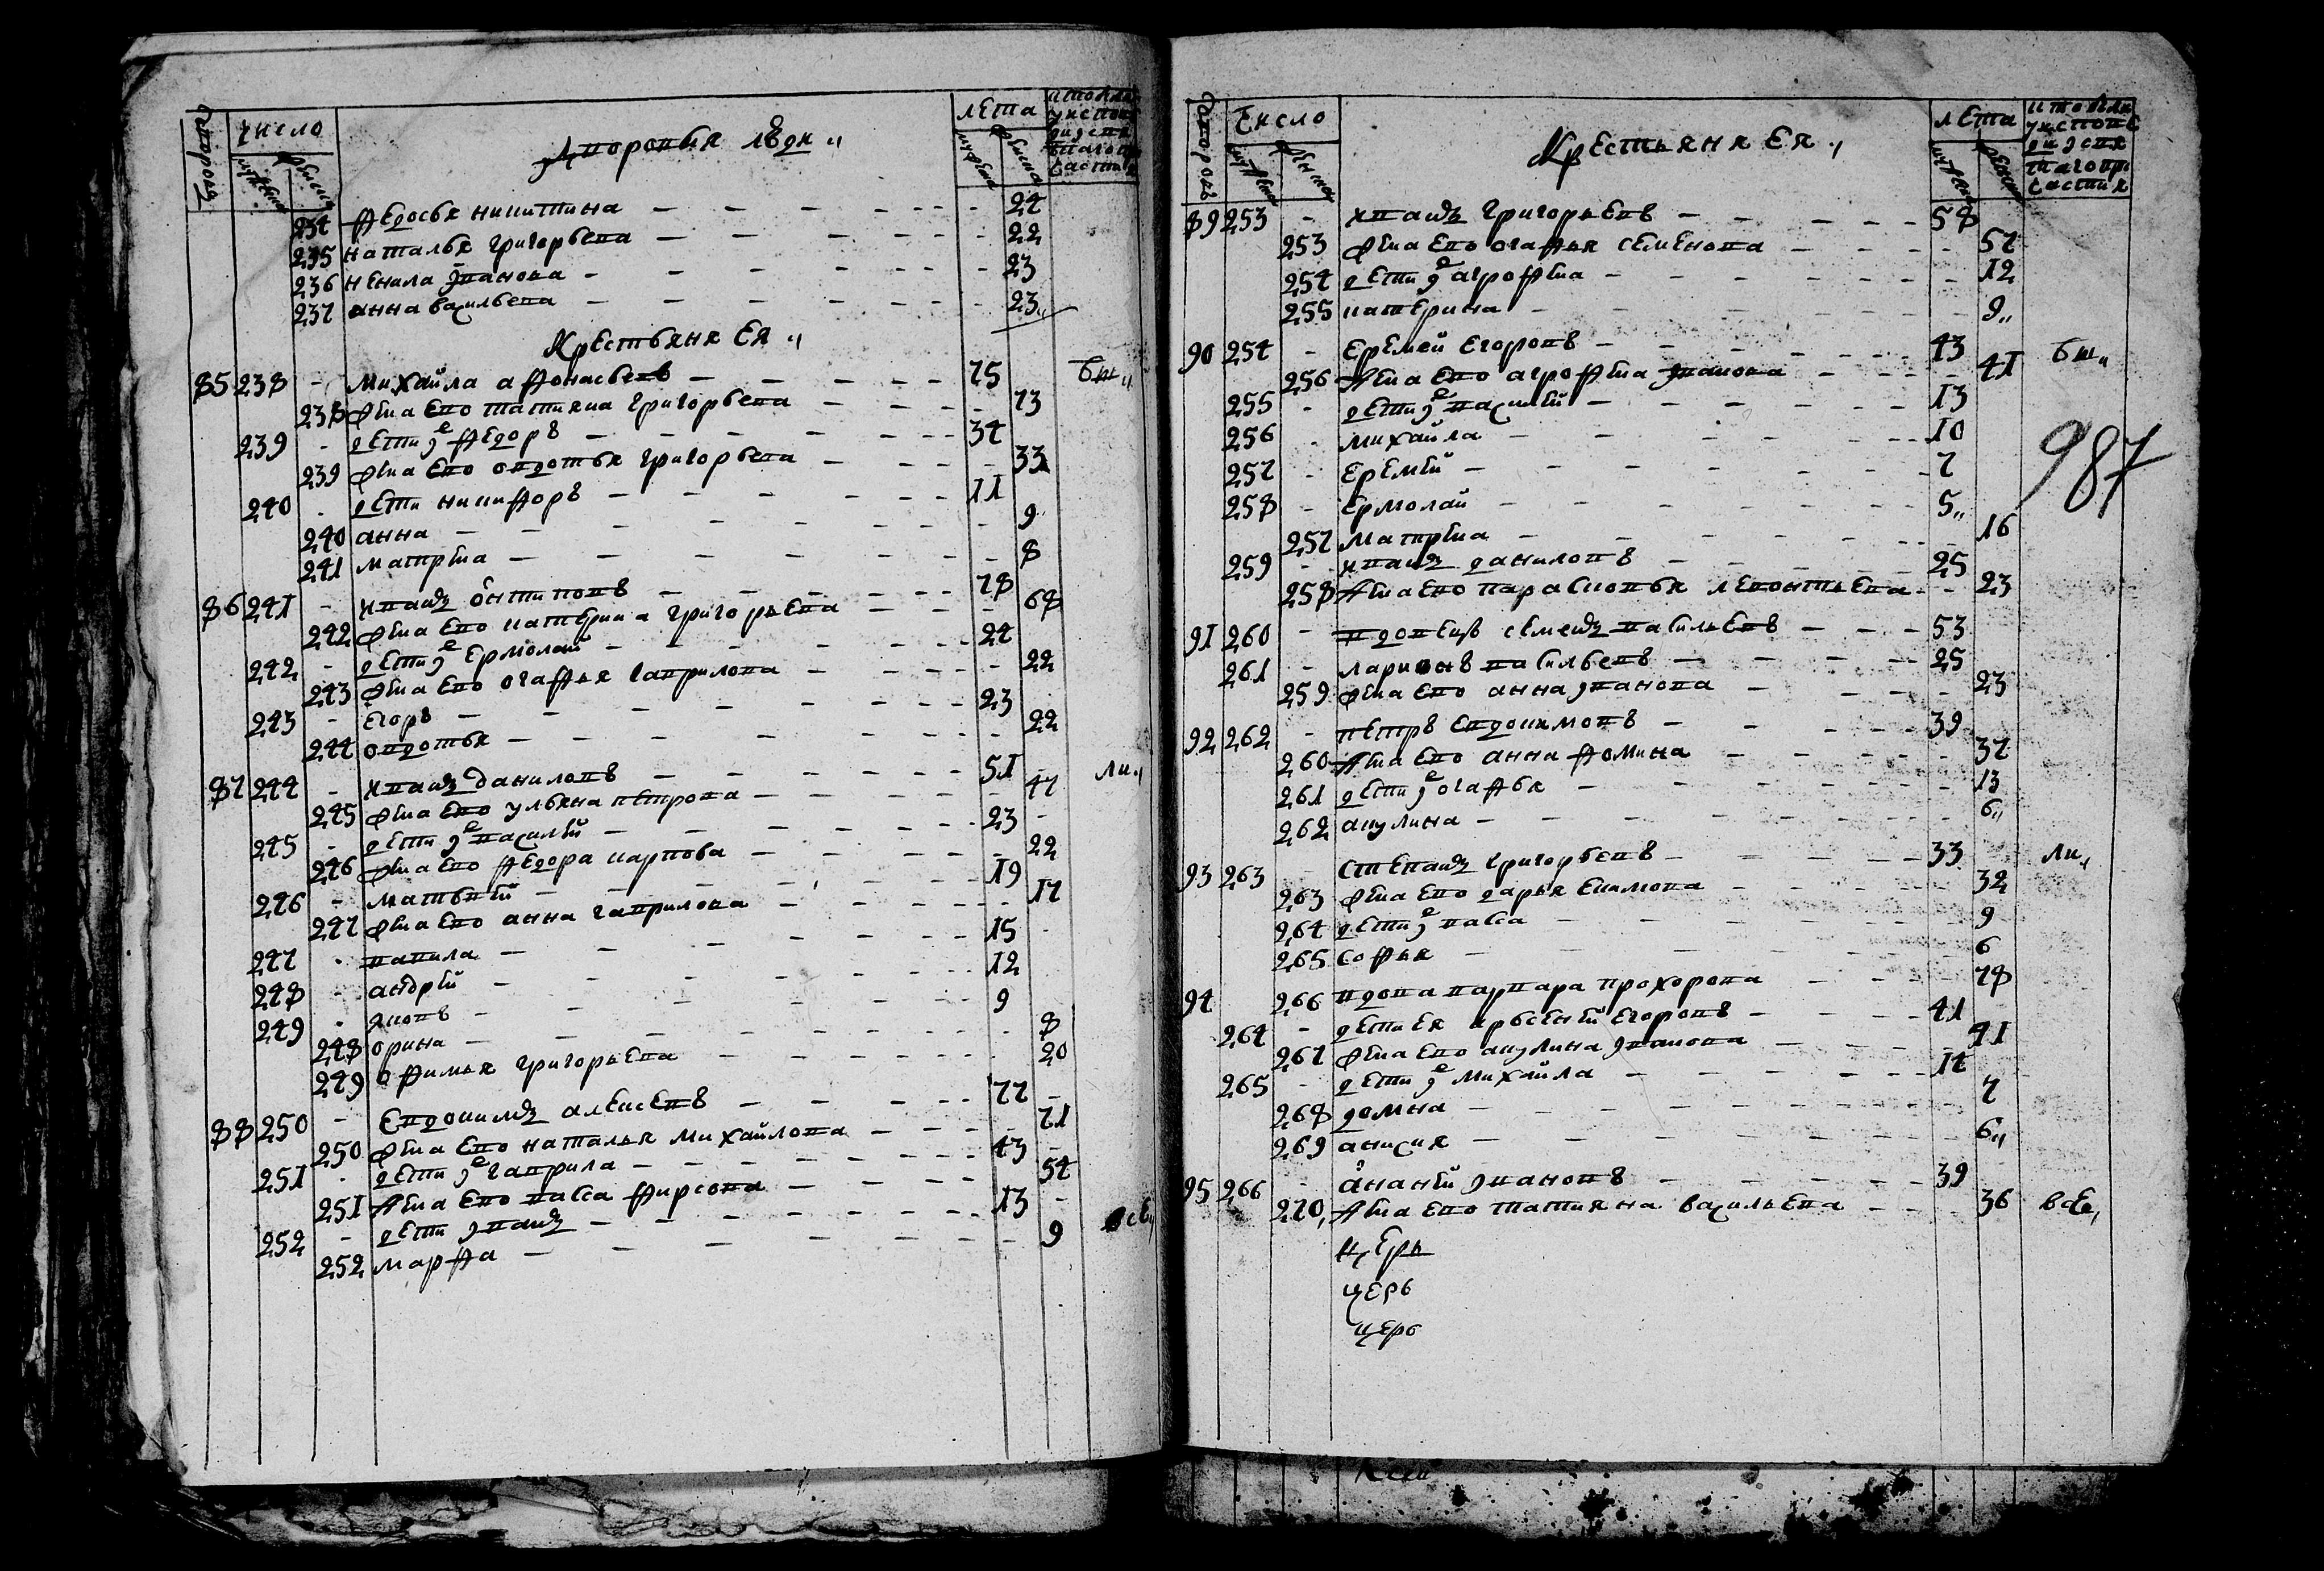 дворовыя люди
число лета
234 Федосья никитина 24
235 наталья григорьева 22
236 ненила иванова 23
237 анна васильева 23
Крестьяня Ея
85 238 Михайла афонасьевъ 75
238 жена ево татияна григорьева 73
239 дети их федоръ 34
239 жена ево овдотья григорьева 33
240 дети никифоръ 11
240 анна 9
241 матрена 8
86 241 иванъ онтиповъ 78
242 жена ево катерина григорьева 68
242 дети их Ермолай 24
243 жена ево огафья гаврилова 22
243 Егоръ 23
244 овдотья 22
87 244 иванъ даниловъ 51
245 жена ево ульяна петрова 47
245 дети их василей 23
246 жена ево федора карпова 22
246 матвей 19
247 жена ево анна гаврилова 17
247 вавила 15
248 андрей 12
249 яковъ 9
248 орина 8
249 офимья григорьева 20
88 250 Евдокимъ алексевъ 77
250 жена ево наталья михайлова 71
251 дети их гаврила 43
251 жена ево васса фирсова 54
252 дети иванъ 13
252 марфа 9
число Крестьяня Ея лета
89 253 иванъ григорьевъ 58
253 жена ево огафья семенова 57
254 дети их агрофена 12
255 катерина 9
90 254 Еремей Егоровъ 43
256 жена ево агрофена иванова 41
255 дети их василей 13
256 михайла 10
257 Еремей 7
258 Ермолай 5
257 матрена 16
259 иванъ даниловъ 25
258 жена ево парасковья леонтьева 23
91 260 вдовецъ семенъ васильевъ 53
261 ларионъ васильевъ 25
259 жена ево анна иванова 23
92 262 петръ Евдокимовъ 39
260 жена ево анна фомина 37
261 дети их огафья 13
262 акулина 6
93 263 степанъ григорьевъ 33
263 жена ево дарья Екимова 32
264 дети их васса 9
265 софья 6
94 266 вдова варвара прохорова 78
264 дети ея арьсеней Егоровъ 41
267 жена ево акулина иванова 41
265 дети их михайла 14
268 домна 7
269 анисия 6
95 266 ананей ивановъ 39
270 жена ево татияна васильева 36
церь
церь
церь
987